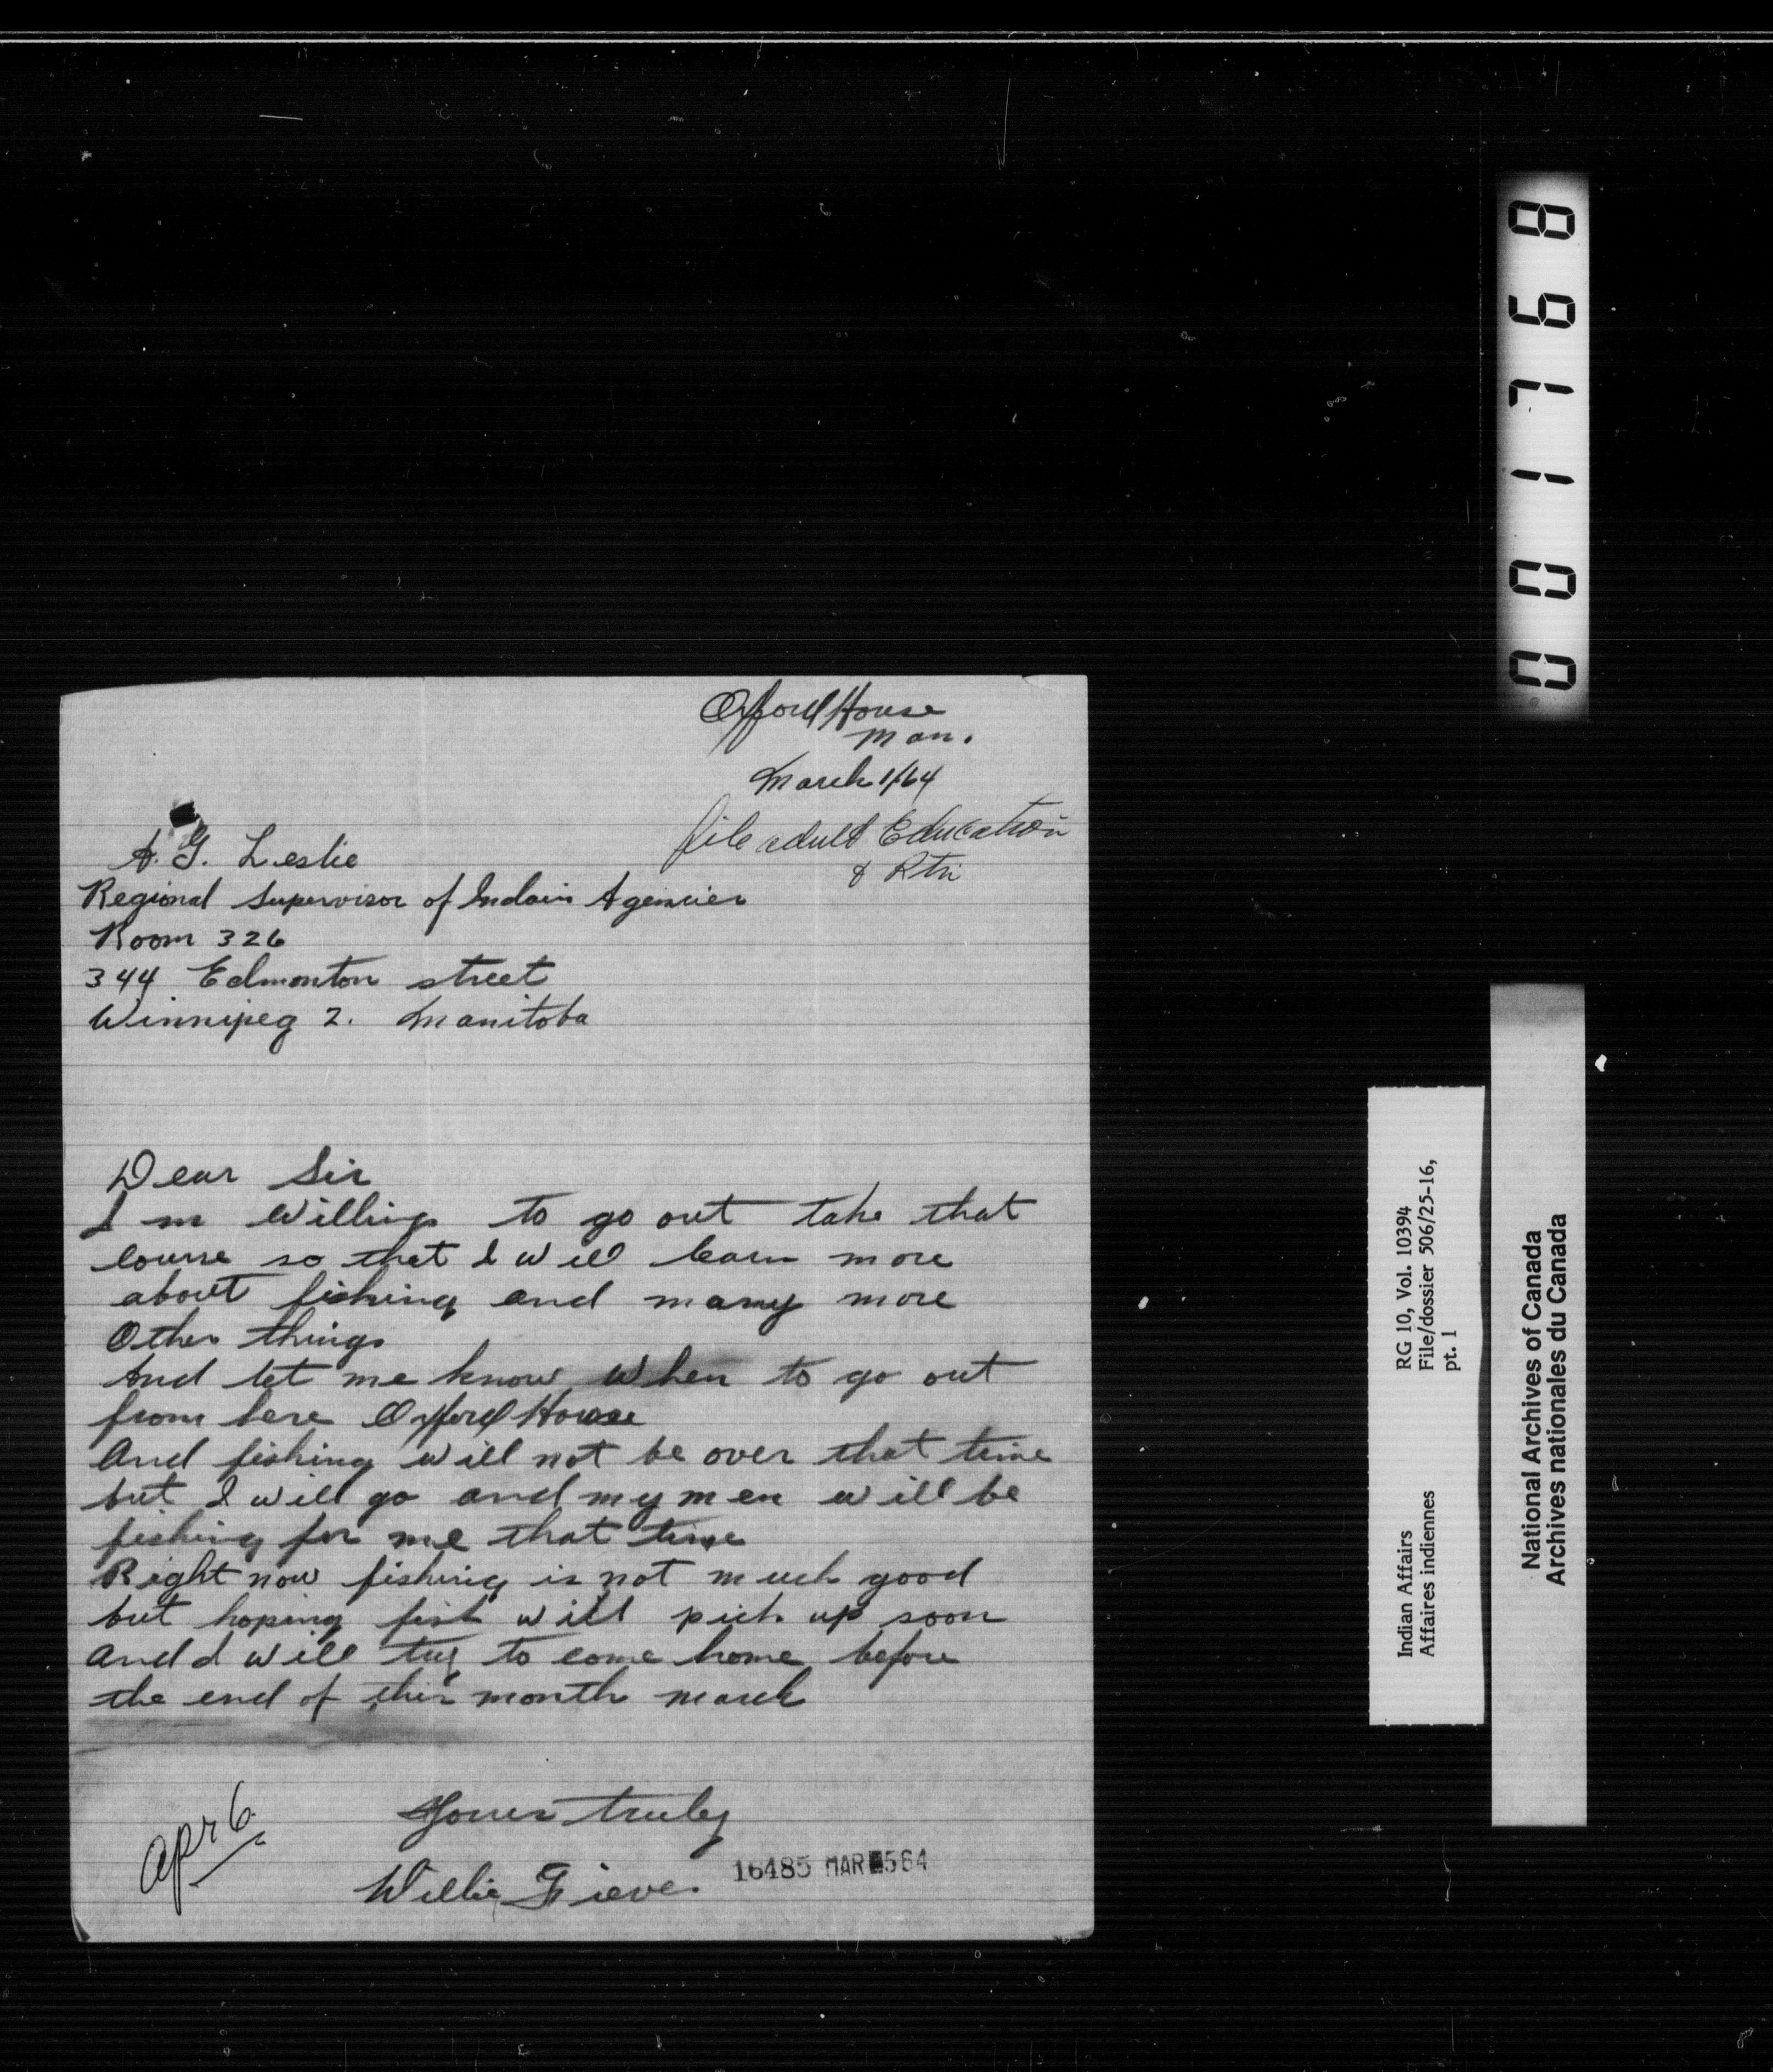 Oxford House
Man.
March 1/64
file adult Education
&
A. G. Leslie
Regional Supervisor of Indain Agencies
Room 326
344 Edmonton street
Winnipeg 2. Manitoba
Dear Sir
I m willing to go out take that
course so that I will learn more
about fishing and many more
Other things
And let me know when to go out
from here Oxford House
And fishing will not be over that time
but I will go and my men will be
fishing for me that time
Right now fishing is not much good
but hoping fish will pick up soon
and I will try to come home before
the end of this month march
Yours truley
Willie Grieves
apr 6
16485 MAR 564
001768
RG 10, Vol. 10394
File/dossier 506/25-16,
pt. 1
Indian Affairs
Affaires indiennes
National Archives of Canada
Archives nationales du Canada